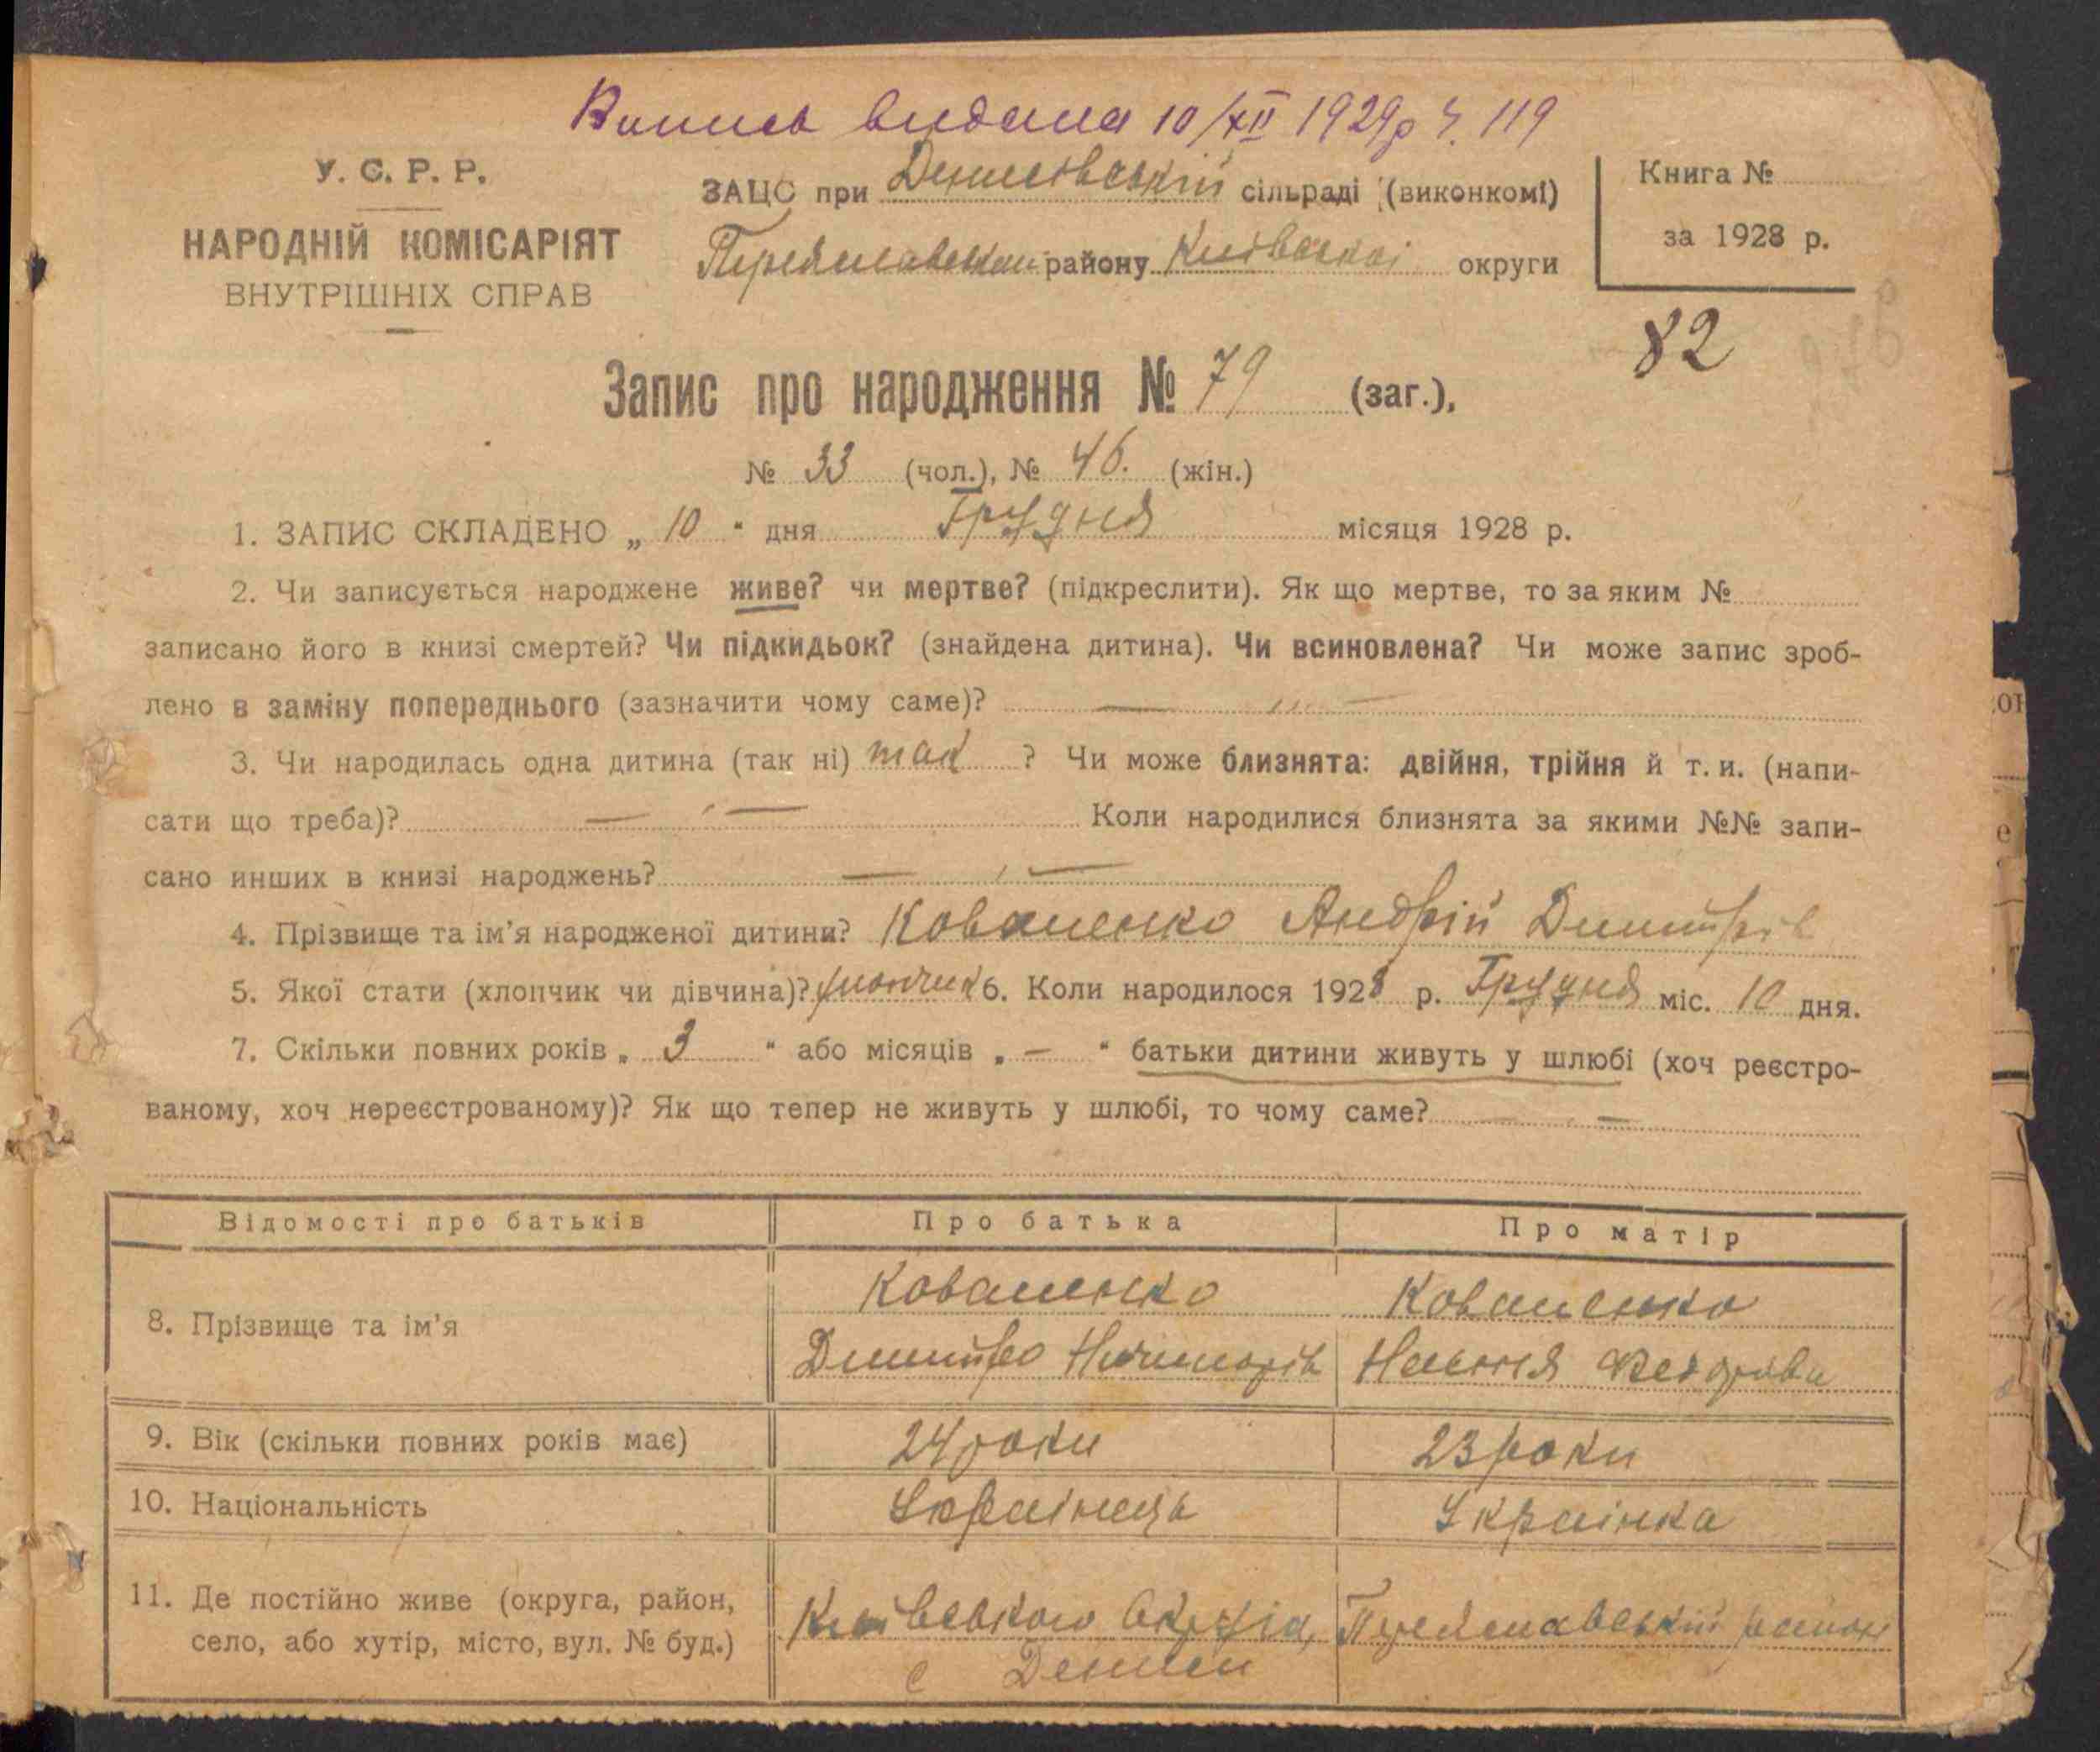 Випись видана 10/XII 1929 р Ч. 119
У. С. Р. Р.
НАРОДНІЙ КОМІСАРІЯТ
ВНУТРІШНІХ СПРАВ
ЗАЦС при сільраді (виконкомі)
району Київської округи
Книга №
за 1928 р.
82
Запис про народження № 79 (заг.),
№ 33 (чол.), № 46. (жін.)
1. ЗАПИС СКЛАДЕНО „ 10 " дня Грудня місяця 1928 р.
2. Чи записується народжене живе? чи мертве? (підкреслити). Як що мертве, то за яким №
записано його в книзі смертей? Чи підкидьок? (знайдена дитина). Чи всиновлена? Чи може запис зроб-
лено в заміну попереднього (зазначити чому саме)? — „ —
3. Чи народилась одна дитина (так ні) так ? Чи може близнята: двійня, трійня й т. и. (напи-
сати що треба)? — „ — Коли народилися близнята за якими №№ запи-
сано инших в книзі народжень? — „ —
4. Прізвище та ім'я народженої дитини? Коваленко Андрій Дмитрів
5. Якої стати (хлопчик чи дівчина)? хлопчик 6. Коли народилося 1928 р. Грудня міс. 10 дня.
7. Скільки повних років „ 3 " або місяців „ — " батьки дитини живуть у шлюбі (хоч реєстро-
ваному, хоч нереєстрованому)? Як що тепер не живуть у шлюбі, то чому саме? — „ —
Відомості про батьків Про батька Про матір
8. Прізвище та ім'я
Коваленко Коваленко
Дмитро Ничипорів
9. Вік (скільки повних років має) 24 роки 23 роки
10. Національність Українець Українка
11. Де постійно живе (округа, район,
село, або хутір, місто, вул. № буд.)
Переяславський район
с